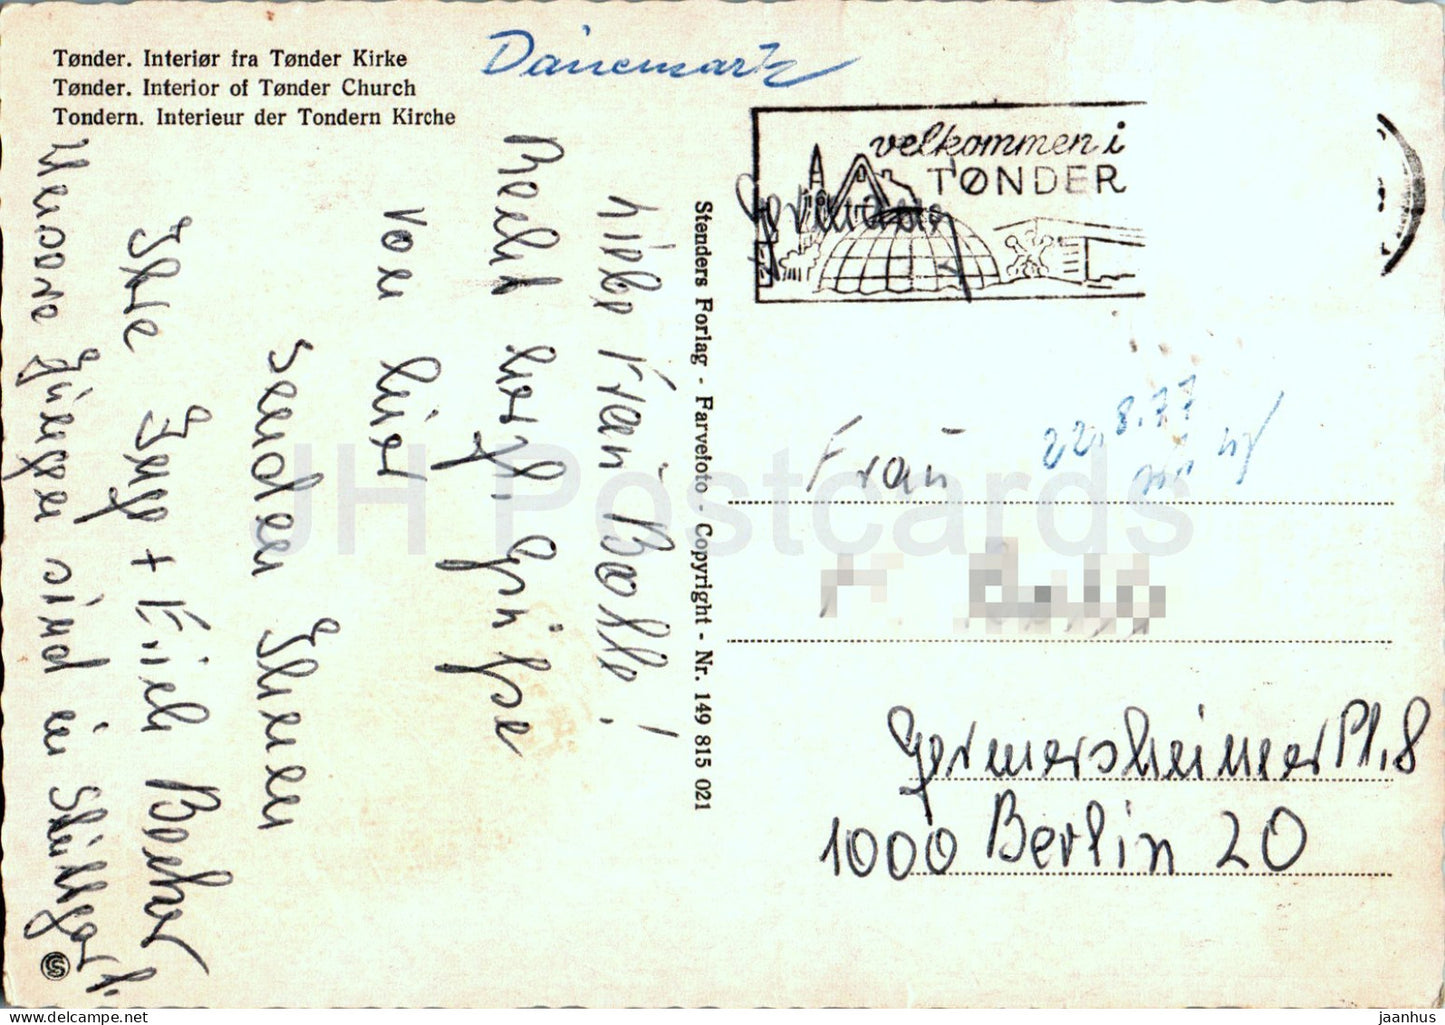 Tønder. Interiør fra Tønder Kirke
Tønder. Interior of Tønder Church
Tondern. Interieur der Tondern Kirche
Dänemark
velkommen i
TØNDER
Liebe Frau Bolle!
Recht herzl. Grüße
von hier
senden Ihnen
Ihre Inge + Erich Becker
Unsere Jungen sind in Stuttgart.
Stenders Forlag - Farvefoto - Copyright - Nr. 149 815 021
22.8.77
Frau
Germersheimer Pl. 8
1000 Berlin 20
JH Postcards
jaanhus